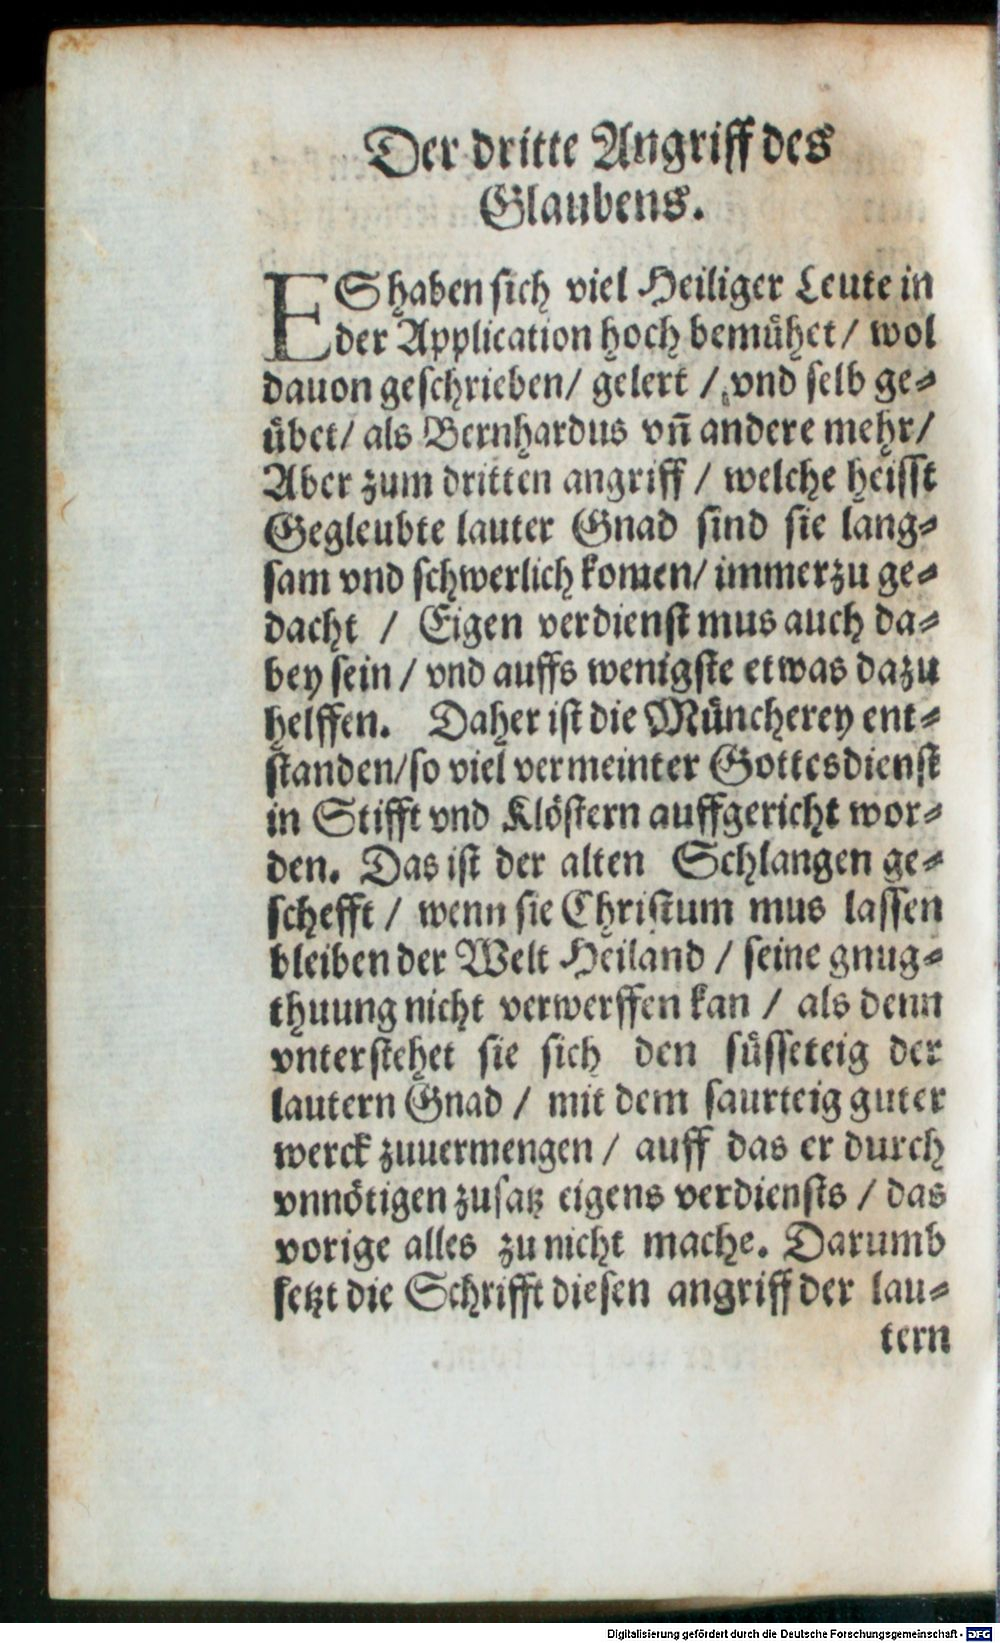 Der dritte Angriff des
Glaubens.
ES haben sich viel Heiliger Leute in
der Application hoch bemühet / wol
dauon geschrieben / gelert / vnd selb ge⸗
übet / als Bernhardus vñ andere mehr /
Aber zum dritten angriff / welche heisst
Gegleubte lauter Gnad sind sie lang⸗
sam vnd schwerlich komen / immerzu ge⸗
dacht / Eigen verdienst mus auch da⸗
bey sein / vnd auffs wenigste etwas dazu
helffen. Daher ist die Müncherey ent⸗
standen / so viel vermeinter Gottesdienst
in Stifft vnd Klöstern auffgericht wor⸗
den. Das ist der alten Schlangen ge⸗
schefft / wenn sie Christum mus lassen
bleiben der Welt Heiland / seine gnug⸗
thuung nicht verwerffen kan / als denn
vnterstehet sie sich den süsseteig der
lautern Gnad / mit dem saurteig guter
werck zuuermengen / auff das er durch
vnnötigen zusatz eigens verdiensts / das
vorige alles zu nicht mache. Darumb
setzt die Schrifft diesen angriff der lau⸗
tern
Digitalisierung gefördert durch die Deutsche Forschungsgemeinschaft - DFG